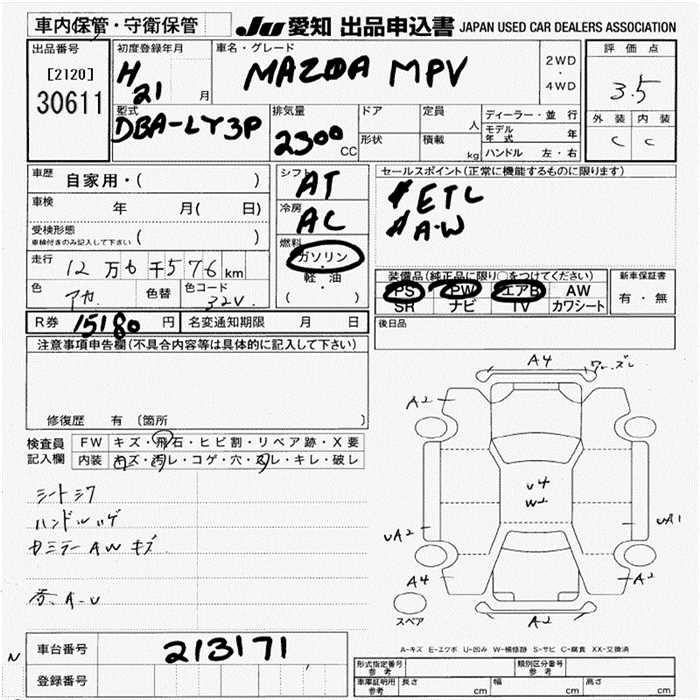 車内保管・守衛保管
JU 愛知 出品申込書 JAPAN USED CAR DEALERS ASSOCIATION
出品番号
[2120]
30611
初度登録年月
H
21
月
車名・グレード
MAZDA MPV
2WD
・
4WD
評価点
3.5
外装 内装
C C
型式
DBA-LY3P
排気量
2300
CC
ドア
形状
定員
人
積載
kg
ディーラー・並行
モデル
年式
年
ハンドル 左・右
車歴
自家用・( )
車検
年 月( 日)
受検形態
車検付きのみ記入して下さい ( )
走行
12万6千576km
色
アカ
色替
色コード
32V
シフト
AT
冷房
AC
燃料
ガソリン
・
軽・油
( )
セールスポイント(正常に機能するものに限ります)
ETC
A.W
装備品(純正品に限り○をつけてください)
PS PW エアB AW
SR ナビ TV カワシート
新車保証書
有・無
後日品
R券 15180 円
名変通知期限 月 日
注意事項申告欄(不具合内容等は具体的に記入して下さい)
修復歴 有〔箇所 〕
検査員
記入欄
FW キズ・飛石・ヒビ割・リペア跡・X要
内装 キズ・汚レ・コゲ・穴・スレ・キレ・破レ
シートシワ
ハンドルハゲ
カミラー AW キズ
A-U
A4
ワレ・ズレ
A2
U4
W2
UA2
UA1
A4
A2
A2
スペア
A-キズ E-エクボ U-凹み W-補修跡 S-サビ C-腐食 XX-交換済
N
車台番号
213171
登録番号
形式指定番号
参考
類別区分番号
参考
車庫証明用
参考
長さ cm
幅 cm
高さ cm